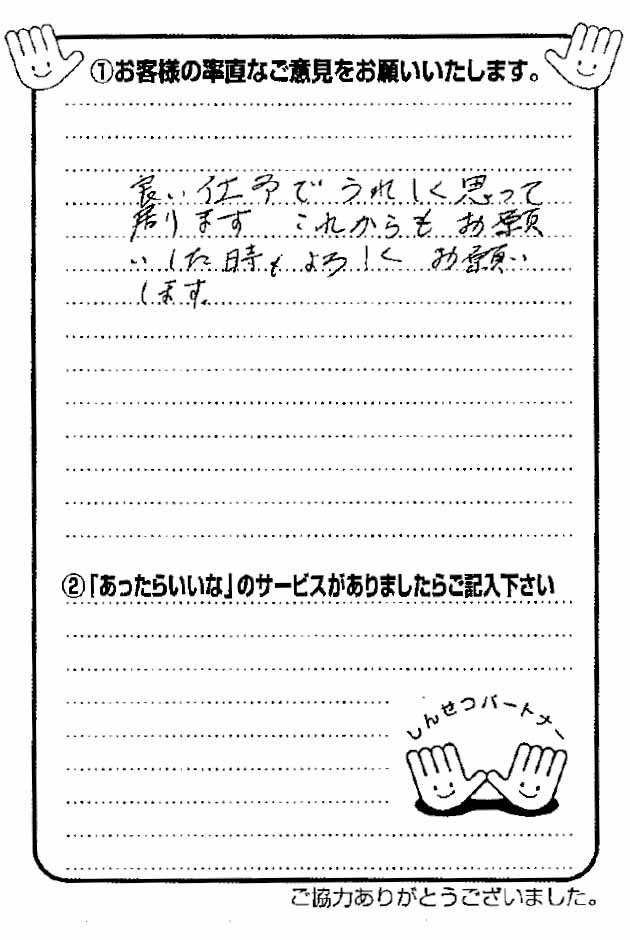 ①お客様の率直なご意見をお願いいたします。
良い仕事でうれしく思って
居ります これからもお願
いした時もよろしくお願い
します。
②「あったらいいな」のサービスがありましたらご記入下さい
しんせつパートナー
ご協力ありがとうございました。